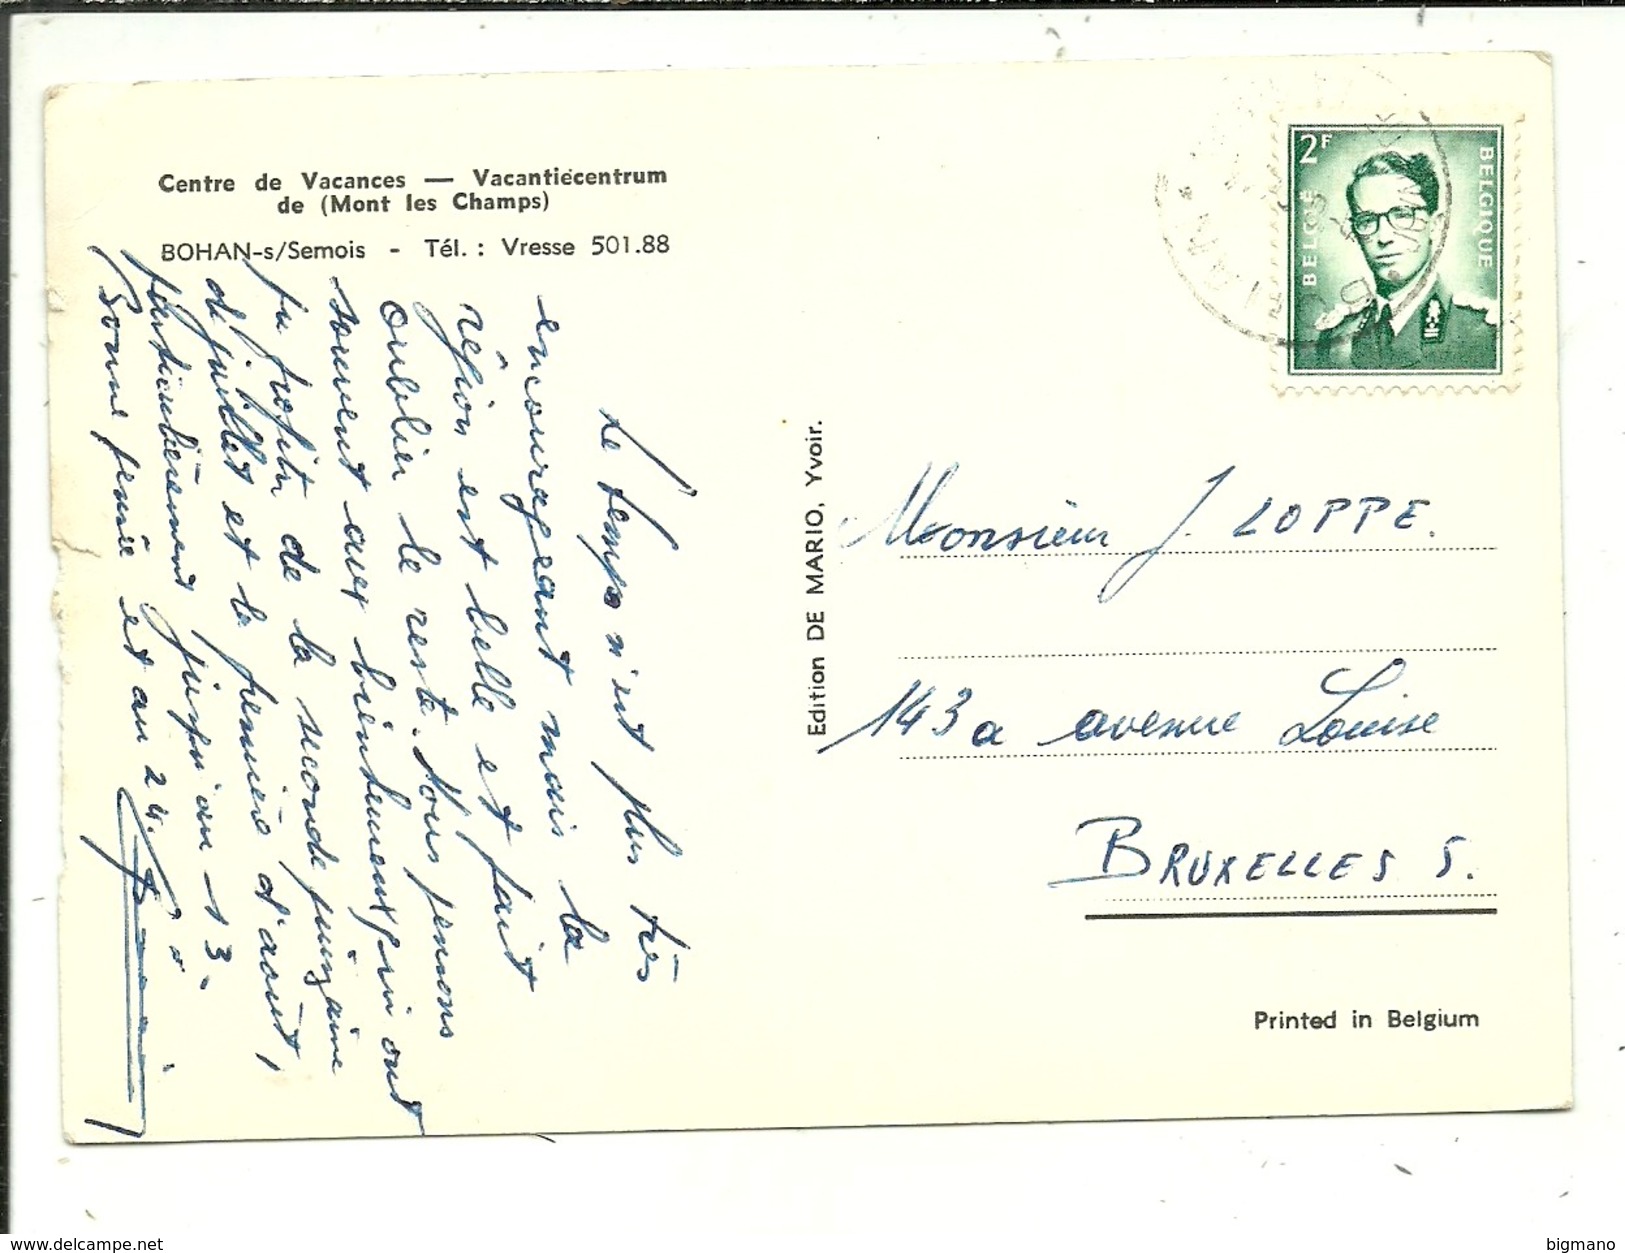 Centre de Vacances — Vacantiecentrum
de (Mont les Champs)
BOHAN-s/Semois - Tél. : Vresse 501.88
Le temps n'est plus très
encourageant mais la
région est belle et fait
oublier le reste. Nous pensons
souvent aux bientenants qui ont
pu profiter de la seconde quinzaine
de juillet et la première d'août,
particulièrement jusqu'au 13.
Bonne fenêe et au 24.
Edition DE MARIO, Yvoir.
2F
BELGIË
BELGIQUE
Monsieur J. LOPPE.
143a avenue Louise
BRUXELLES 5.
Printed in Belgium
www.delcampe.net
bigmano